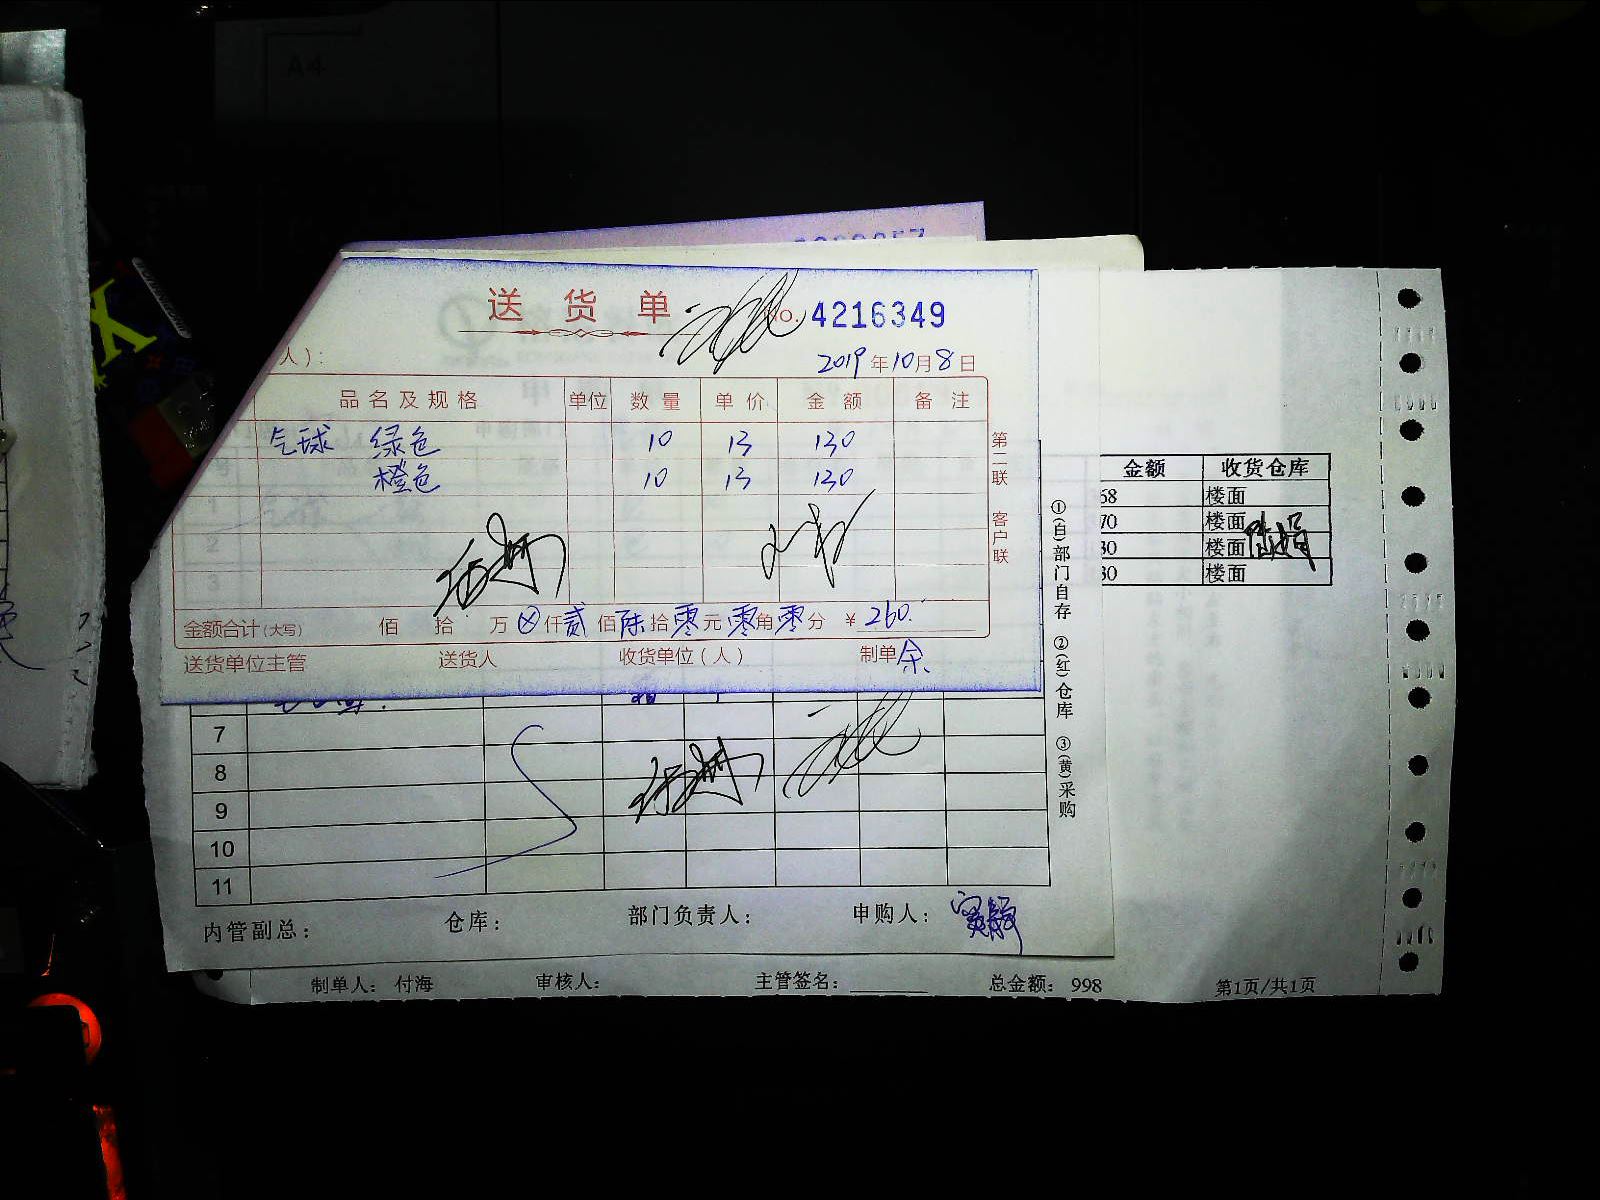 A4
送货单 No. 4216349
人）：
2019年10月8日
品名及规格 单位 数量 单价 金额 备注
气球 绿色 10 13 130
橙色 10 13 130
第二联 客户联
金额合计(大写) 佰 拾 万 ⊗仟贰佰陆拾零元零角零分 ¥260.
送货单位主管 送货人 收货单位(人) 制单 余
金额 收货仓库
68 楼面
70 楼面
80 楼面
80 楼面
①(白)部门自存 ②(红)仓库 ③(黄)采购
7
8
9
10
11
内管副总： 仓库： 部门负责人： 申购人：
制单人： 付海 审核人： 主管签名： 总金额： 998 第1页/共1页